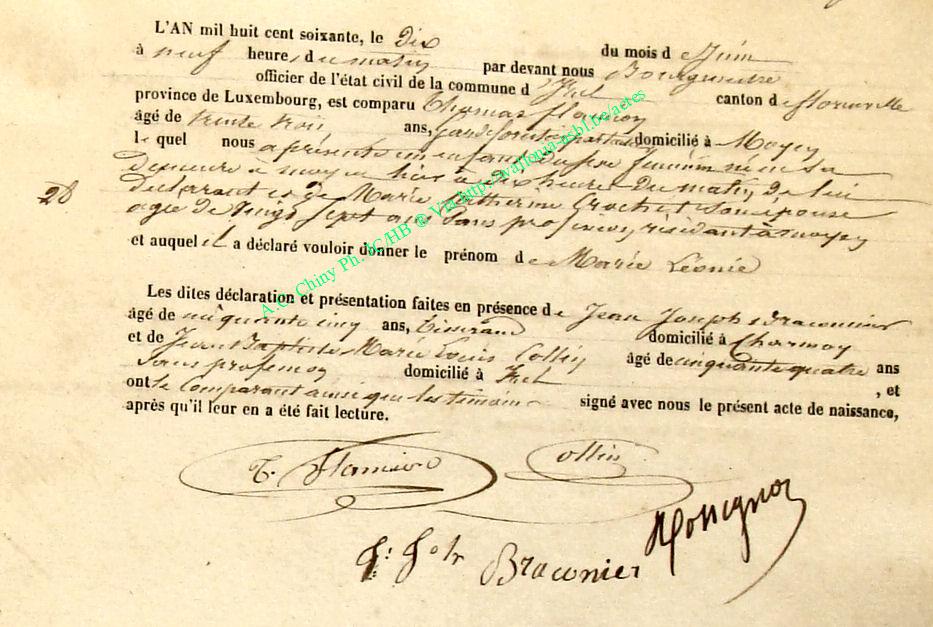 L'AN mil huit cent soixante, le Dix du mois de Juin
à neuf heures du matin par devant nous Bourgmestre
officier de l'état civil de la commune d canton de florenville
province de Luxembourg, est comparu Thomas
âgé de trente trois ans, domicilié à Moyen
le quel nous a présenté un enfant du sexe féminin né en sa
Demeure à moyen hier à dix heures du matin de lui
declarant et de Marie Catherine Crochet son épouse
agée de vingt sept ans sans profession, résidant à moyen
28
et auquel il a déclaré vouloir donner le prénom de Marie Léonie
Les dites déclaration et présentation faites en présence de Jean Joseph Braconnier
âgé de cinquante cinq ans, tisserand domicilié à
et de Jean Baptiste Marie Louis Collin âgé de cinquante quatre ans
sans profession domicilié à , et
ont le Comparant ainsi que les témoins signé avec nous le présent acte de naissance,
après qu'il leur en a été fait lecture.
T. Collin
Rossignon
Braconier
A.C. Chiny Ph. AC/HB ® Via http://wallonia-asbl.be/actes